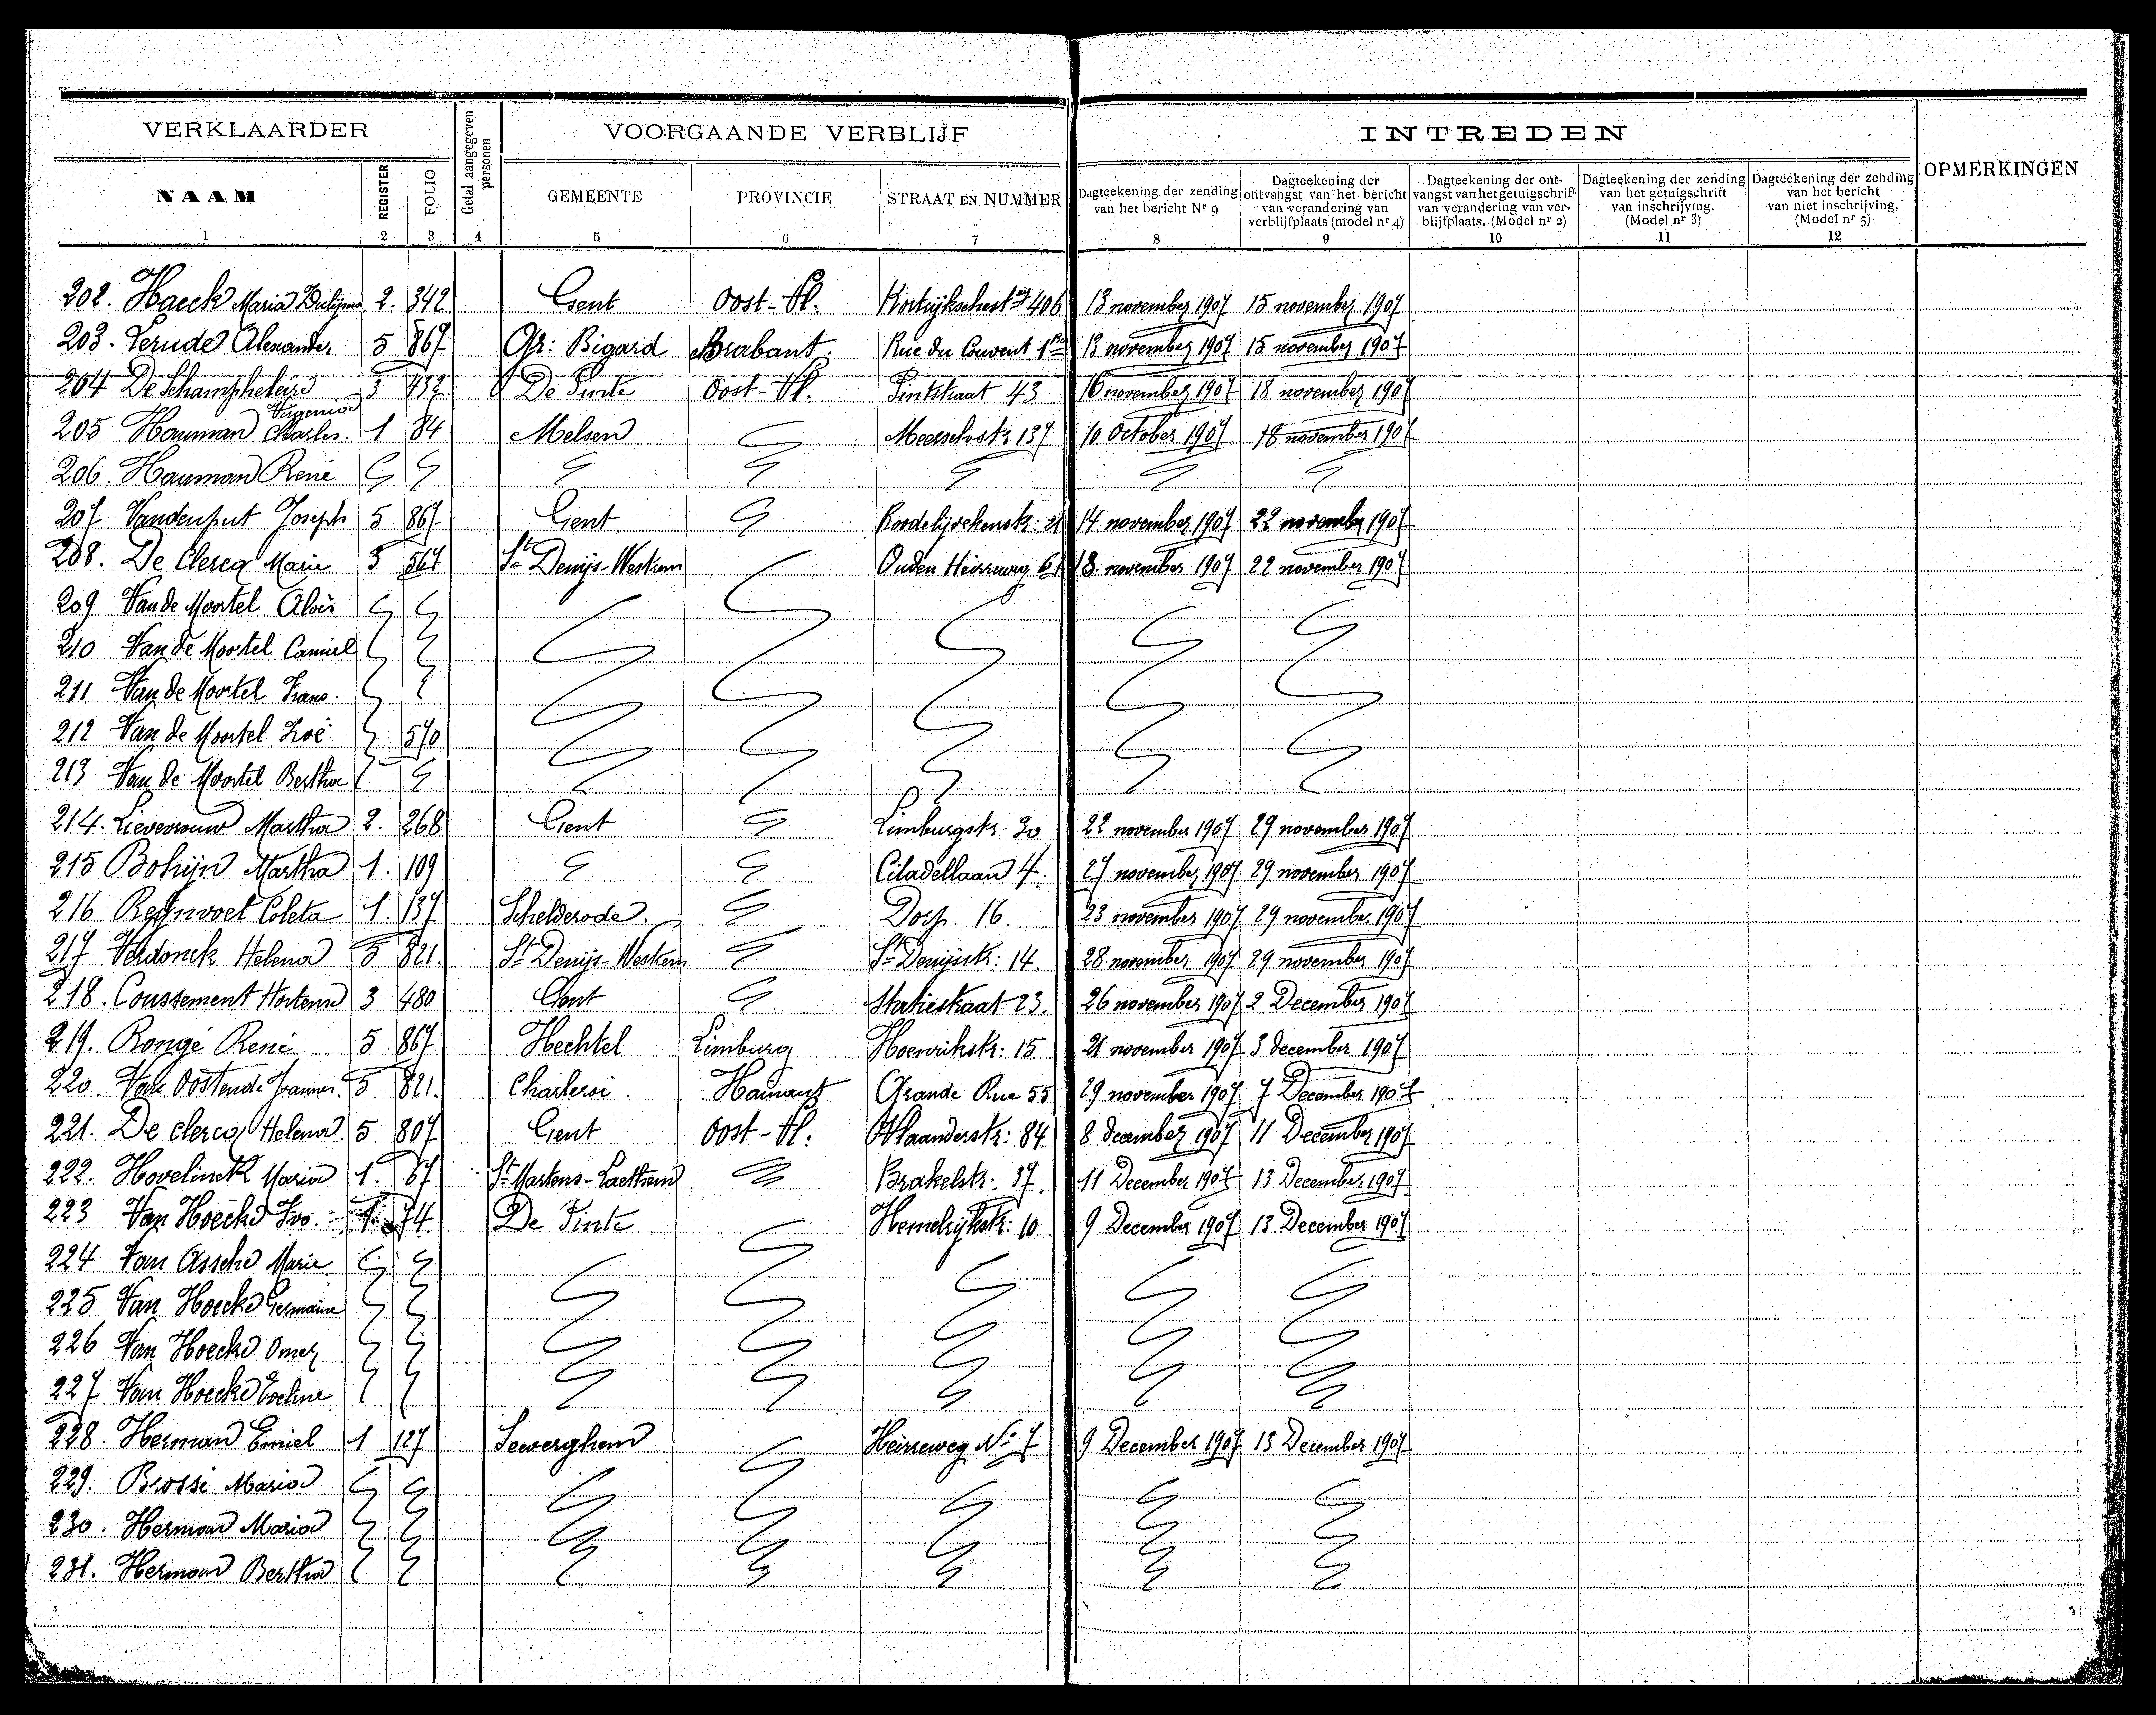 VERKLAARDER
Getal aangegeven personen
VOORGAANDE VERBLIJF
INTREDEN
OPMERKINGEN
NAAM
REGISTER
FOLIO
GEMEENTE
PROVINCIE
STRAAT EN NUMMER
Dagteekening der zending van het bericht Nr 9
Dagteekening der ontvangst van het bericht van verandering van verblijfplaats (model nr 4)
Dagteekening der ontvangst van het getuigschrift van verandering van verblijfplaats. (Model nr 2)
Dagteekening der zending van het getuigschrift van inschrijving. (Model nr 3)
Dagteekening der zending van het bericht van niet inschrijving. (Model nr 5)
1 2 3 4 5 6 7 8 9 10 11 12
202. Haeck Maria 2. 342 Gent Oost-Vl. 406 13 november 1907 15 november 1907
203. Alexander 5 867 Gr: Bigard Brabant. Rue du Couvent 13 november 1907 15 november 1907
204 De Schampheleire 3 432 De Pinte Oost-Vl. Pintstraat 43 16 november 1907 18 november 1907
Eugenie
205 Hauman Charles. 1 84 Melsen Meerschstr 137 10 October 1907 18 november 1907
206. Hauman René
207 Vandenput Joseph 5 867 Gent 14 november 1907 22 november 1907
208. De Clercq Marie 5 567 St Denijs-Westrem Ouden Heirweg 18 november 1907 22 november 1907
209 Van de Moortel Aloïs
210 Van de Moortel Camiel
211 Van de Moortel Frans.
212 Van de Moortel Zoë 570
213 Van de Moortel Bertha
214. Lievevrouw Martha 2. 268 Gent Limburgstr 30 22 november 1907 29 november 1907
215 Bohijn Martha 1. 109 Citadellaan 4. 27 november 1907 29 november 1907
216 Reijnvoet Coleta 1. 137 Schelderode. Dorp. 16. 23 november 1907 29 november 1907
217 Verdonck Helena 5 821. St Denijs-Westrem St Denijsstr: 14 28 november 1907 29 november 1907
218. Coussement Hortense 3 480 Gent Statiestraat 23. 26 november 1907 2 December 1907
219. Rongé René 5 867 Hechtel Limburg 15 21 november 1907 3 december 1907
220. Van Oostende Joannes. 5 821. Charleroi. Hainaut Grande Rue 55 29 november 1907 7 December 1907
221. De Clercq Helena. 5 807 Gent Oost-Vl. Vlaanderstr: 84 8 december 1907 11 December 1907
222. Hovelinck Maria 1. 67 St Martens-Laethem Brakelstr: 37. 11 December 1907 13 December 1907
223 Van Hoecke Ivo. 1. 74. De Pinte Hemelrijkstr: 10 9 December 1907 13 December 1907
224 Van Assche Marie
225 Van Hoecke Germaine
226 Van Hoecke Omer
227 Van Hoecke Eveline
228. Herman Emiel 1 127 Sewerghem Heirweg No 7 9 December 1907 13 December 1907
229. Brossé Maria
230. Herman Maria
231. Herman Bertha